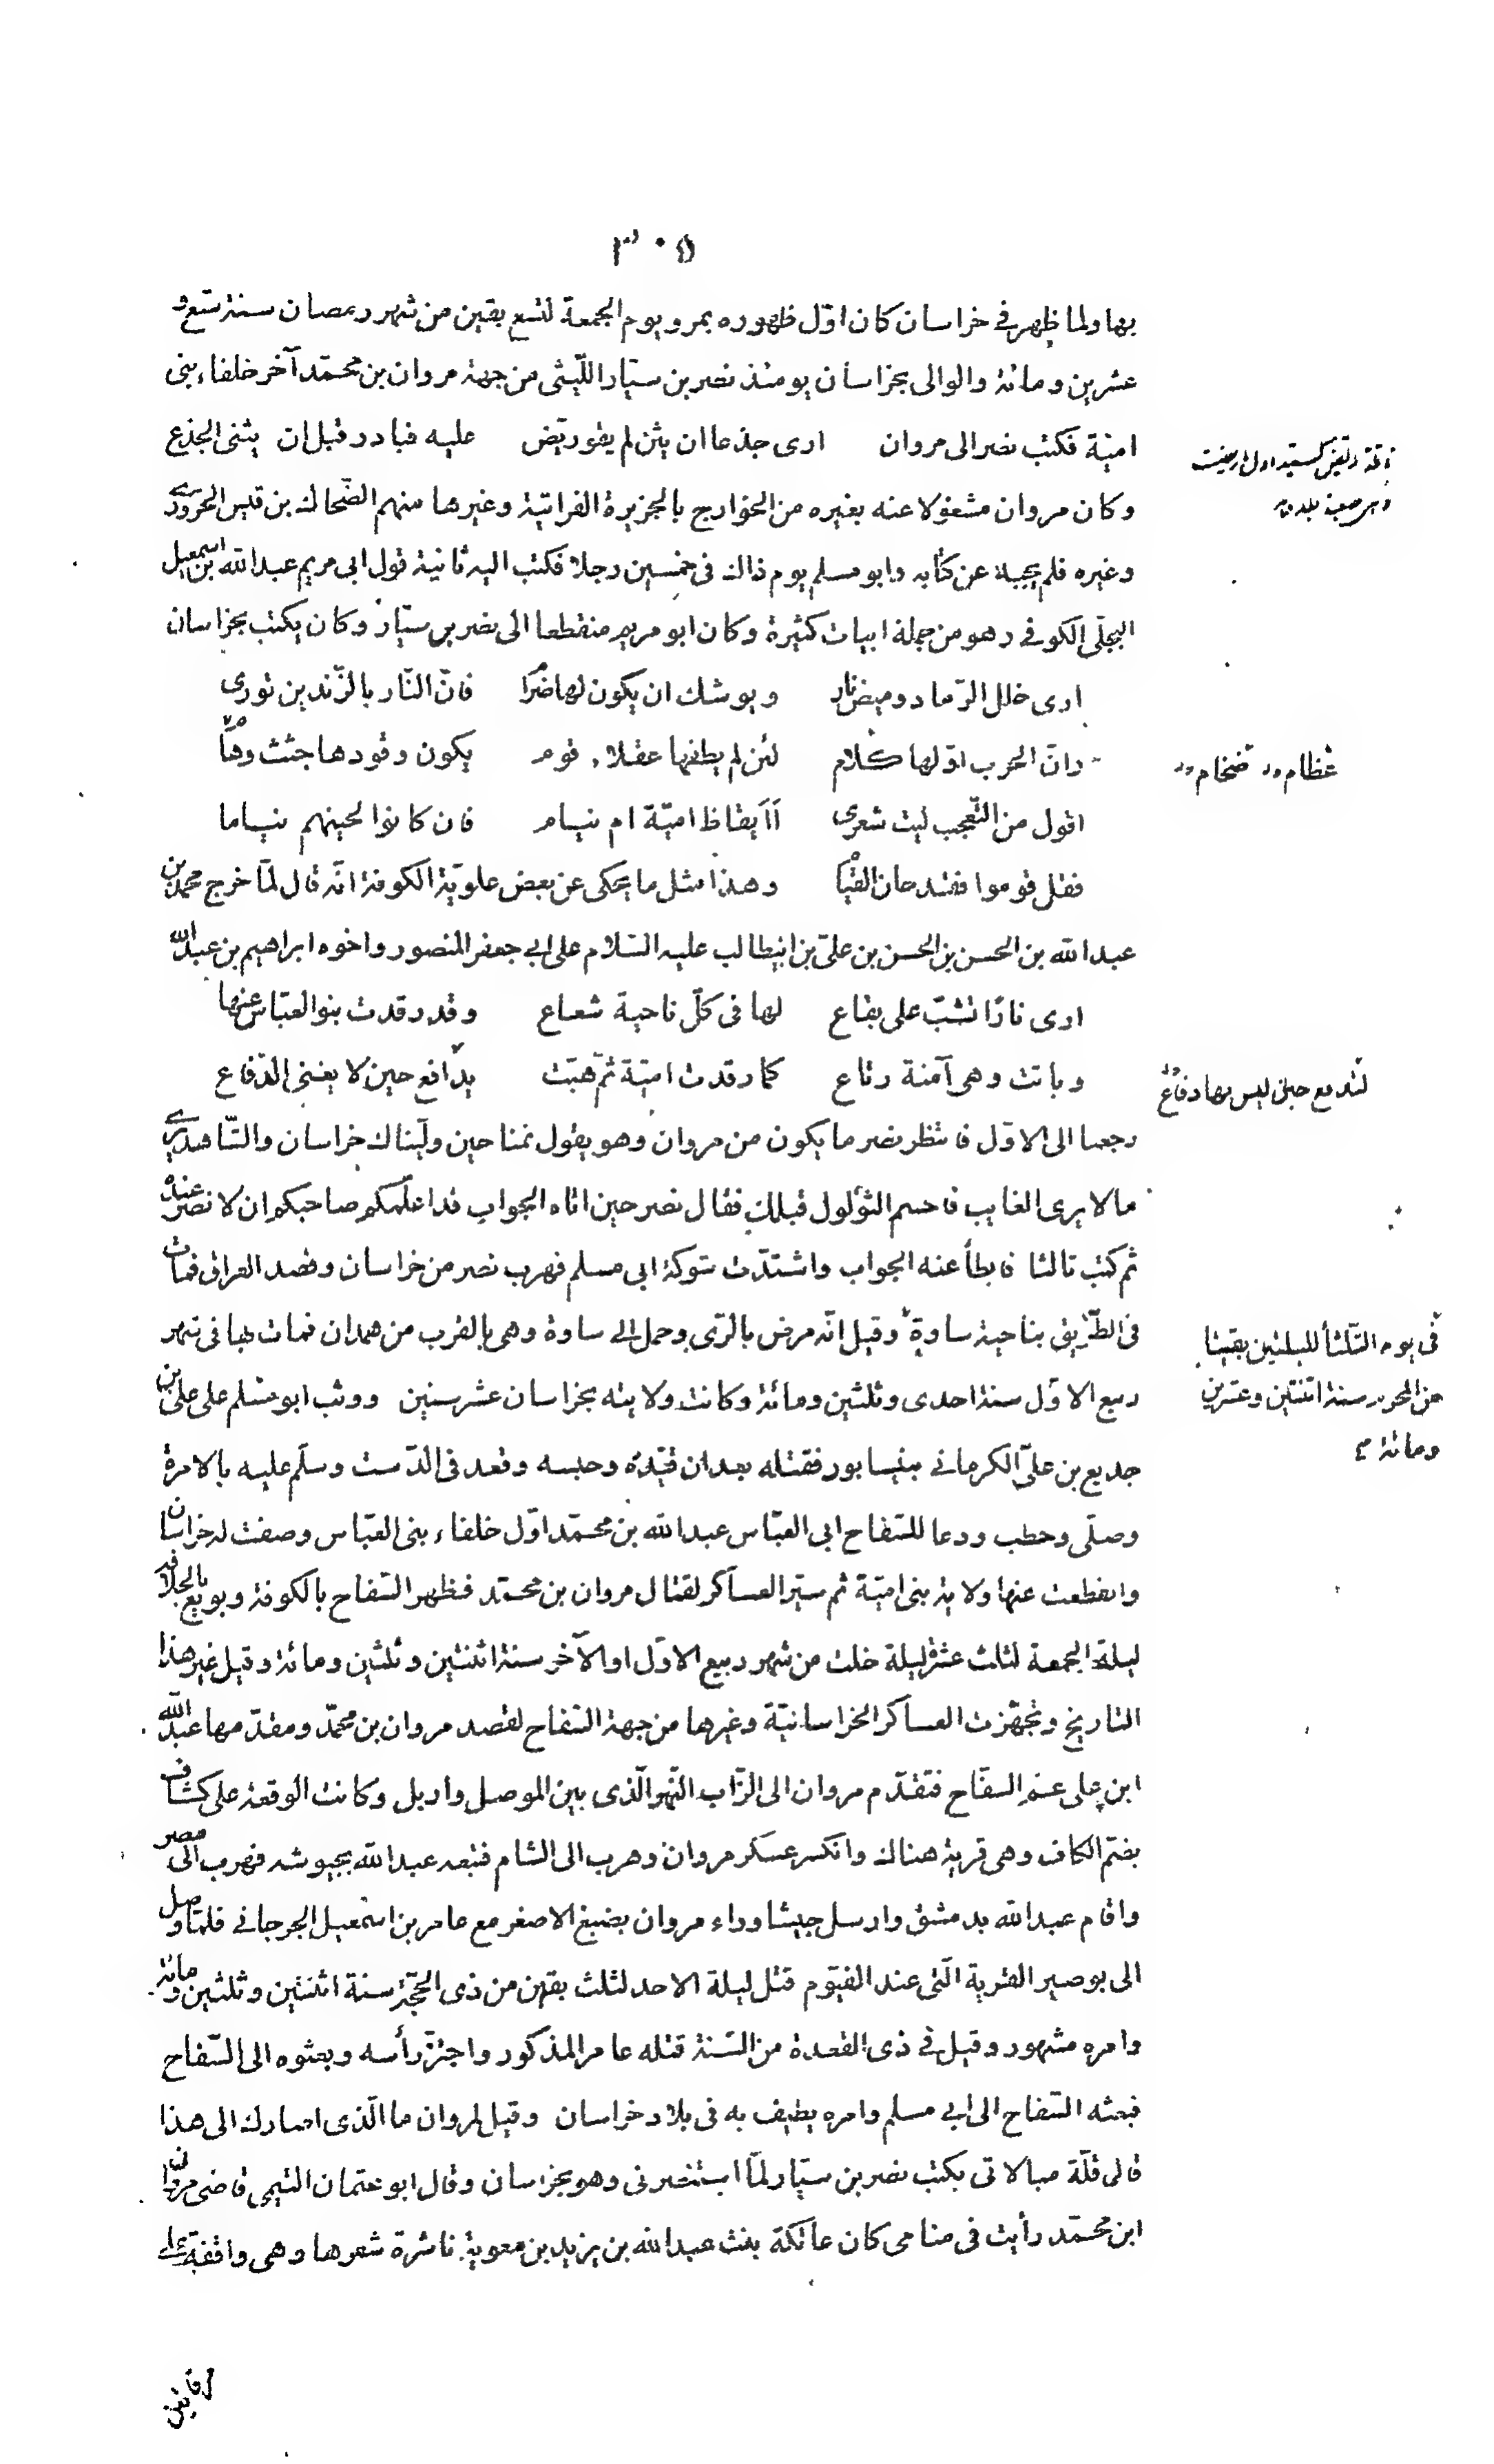 ٣٠٥
بها ولما ظهر في خراسان كان اوّل ظهوره بمرو يوم الجمعة لتسع بقين من شهر رمضان سنة تسع و
عشرين ومائة والوالى بخراسان يومئذ نصر بن سيّار اللّيثى من جهة مروان بن محمّد آخر خلفاء بنى
اميّة فكتب نصر الى مروان ارى جذعا ان يثن لم يقو ريّض عليه فبادر قبل ان يثنى الجذع
وكان مروان مشغولا عنه بغيره من الخوارج بالجزيرة الفراتيّة وغيرها منهم الضّحاك بن قيس الحرورى
وغيره فلم يجبه عن كتابه وابو مسلم يوم ذاك فى خمسين رجلا فكتب اليه ثانية قول ابى مريم عبد الله بن اسمعيل
البجلّى الكوفى وهو من جملة ابيات كثيرة وكان ابو مريم منقطعا الى نصر بن سيّار وكان يكتب بخراسان
ارى خلل الرّماد وميض نار ويوشك ان يكون لها ضرا فانّ النّار بالزّندين تورى
وانّ الحرب اوّلها كلام لئن لم يطفها عقلاء قوم يكون وقودها جثث وها
اقول من التّعجب ليت شعرى أأيقاظ اميّة ام نيام فان كانوا لحينهم نياما
فقل قوموا فقد حان القيا وهذا مثل ما يحكى عن بعض علويّة الكوفة انّه قال لمّا خرج محمد بن
عبد الله بن الحسن بن الحسن بن علىّ بن ابيطالب عليه السّلام على ابى جعفر المنصور واخوه ابراهيم بن عبد الله
ارى نارًا تشبّ على بقاع لها فى كلّ ناحية شعاع وقد رقدت بنو العبّاس عنها
وباتت وهى آمنة رتاع كما رقدت اميّة ثمّ هبّت يدافع حين لا يغنى الدّفاع
رجعنا الى الاوّل فانتظر نصر ما يكون من مروان وهو يقول نمنا حين وليناك خراسان والشّاهد يرى
ما لا يرى الغايب فاحسم الثؤلول قبلك فقال نصر حين اتاه الجواب قد اعلمكم صاحبكم ان لا نصر عنده
ثم كتب ثالثا فابطأ عنه الجواب واشتدّت شوكة ابى مسلم فهرب نصر من خراسان وقصد العراق فمات
فى الطّريق بناحية ساوة وقيل انّه مرض بالرّى وحمل الى ساوة وهى بالقرب من همدان فمات بها فى شهر
ربيع الاوّل سنة احدى وثلثين ومائة وكانت ولايته بخراسان عشر سنين ووثب ابو مسلم على على بن
جديع بن علىّ الكرمانى بنيسابور فقتله بعد ان قيّده وحبسه وقعد فى الدّست وسلّم عليه بالامرة
وصلّى وخطب ودعا للسّفاح ابى العبّاس عبد الله بن محمّد اوّل خلفاء بنى العبّاس وصفت له خراسان
وانقطعت عنها ولاية بنى اميّة ثم سيّر العساكر لقتال مروان بن محمّد فظهر السّفاح بالكوفة وبويع بالخلافه
ليلة الجمعة لثلث عشرة ليلة خلت من شهر ربيع الاوّل او الآخر سنة اثنتين وثلثين ومائة وقيل غير هذا
التاريخ وتجهّزت العساكر الخراسانيّة وغيرها من جهة السّفاح لقصد مروان بن محمّد ومقدّمها عبد الله
ابن على عمّ السفّاح فتقدّم مروان الى الزّاب النّهر الّذى بين الموصل واربل وكانت الوقعة على كشاف
بضمّ الكاف وهى قرية هناك وانكسر عسكر مروان وهرب الى الشام فتبعه عبد الله بجيوشه فهرب الى مصر
واقام عبد الله بدمشق وارسل جيشا وراء مروان بضبغ الاصغر مع عامر بن اسمعيل الجرجانى فلمّا وصل
الى بوصير القرية الّتى عند الفيّوم قتل ليلة الاحد لثلث بقين من ذى الحجّة سنة اثنتين وثلثين ومائة
وامره مشهور وقيل فى ذى القعدة من السّنة قتله عامر المذكور واجتزّ رأسه وبعثوه الى السّفاح
فبعثه السّفاح الى ابى مسلم وامره يطيف به فى بلاد خراسان وقيل لمروان ما الّذى اصارك الى هذا
قال قلّة مبالاتى بكتب نصر بن سيّار لمّا استنصرنى وهو بخراسان وقال ابو عثمان التيمى قاضى مروان
ابن محمّد رأيت فى منامى كان عاتكة بنت عبد الله بن يزيد بن معوية ناشرة شعرها وهى واقفة على
ناقة ريّض كسيّد اول ما ريضت
وهى صعبة بعد
عظام ضخام
لتدفع حين ليس بها دفاع
فى يوم الثّلثا لليلتين بقيتا
من المحرم سنة اثنتين وعشرين
ومائة